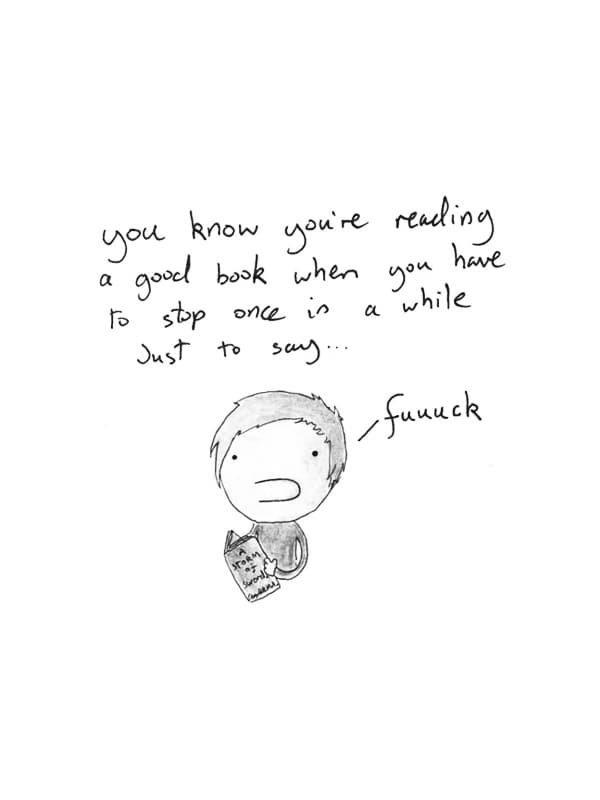 you know you're reading
a good book when you have
to stop once in a while
Just to say...
fuuuck
A
STORM
of
Swords